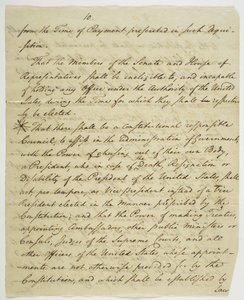 10.
from the Time of Payment prefixed in such Requi-
sition.
That the Members of the Senate and House of
Representatives shall be ineligible to, and incapable
of holding any Office under the Authority of the United
States, during the Time for which they shall respectively
be elected.
That there shall be a constitutional responsible
Council, to assist in the Administration of Government,
with the Power of chusing out of their own Body,
a President, who in case of the Death, Resignation or
Disability of the President of the United States, shall
act, pro tempore, as Vice President instead of a Vice
President elected in the Manner prescribed by the
Constitution; and that the Power of making Treaties,
appointing Ambassadors, other public Ministers or
Consuls, Judges of the Supreme Courts, and all
other Officers of the United States, whose appoint-
ments are not otherwise provided for by the
Constitution, and which shall be established by
Law